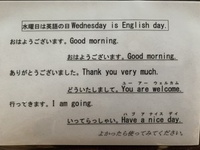 水曜日は英語の日 Wednesday is English day.
おはようございます。Good morning.
おはようございます。Good morning.
ありがとうございました。Thank you very much.
ユー アー ウェルカム
どういたしまして。You are welcome.
行ってきます。I am going.
ハブ ア ナイス デイ
いってらっしゃい。Have a nice day.
よかったら使ってみてください。